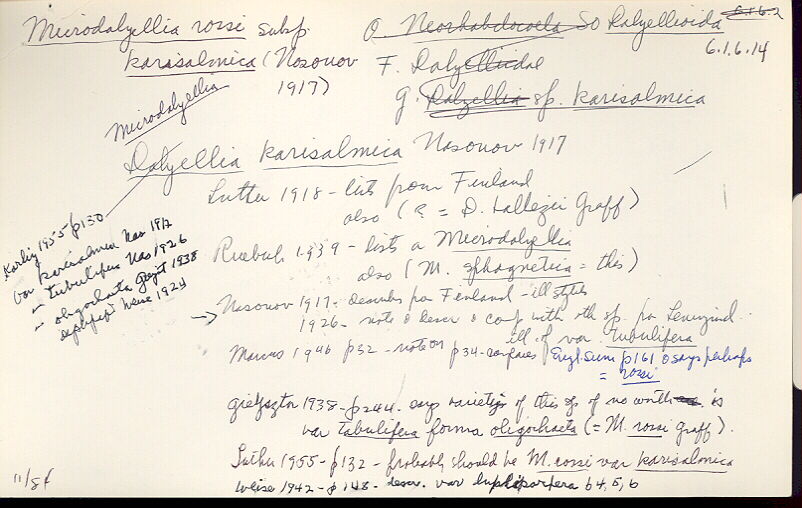 Microdalyellia rossi subsp.
karisalmica (Nasonov
1917)
O Neorhabdocoela SO Dalyellioida 6.1.6.2
6.1.6.14
F. Dalyelliidae
g. Dalyellia sp. karisalmica
Microdalyellia
Dalyellia karisalmica Nasonov 1917
Luther 1918 - lists from Finland
also (? = D. hallezii Graff)
Ruebush 1939 - lists a Microdalyellia
also (M. sphagnetica = this)
Karling 1955 p130
var karisalmica Nas 1917
- tubulifera Nas 1926
- oligochaeta Gieysz 1938
Weise 1942
→ Nasonov 1917 - describes for Finland - ill stylets
1926 - note & descr & comp with oth sp. fr Leningrad.
ill. of var. tubulifera
Marcus 1946 p32 - note on p34 - compares Engl. Sum p161 & says perhaps
= rossi
Gieysztor 1938 - p244 - says varieties of this sp of no worth is
var tabulifera forma oligochaeta (= M. rossi Graff).
Luther 1955 - p132 - probably should be M. rossi var karisalmica
Weise 1942 - p148 - descr. var b4, 5, 6
11/54